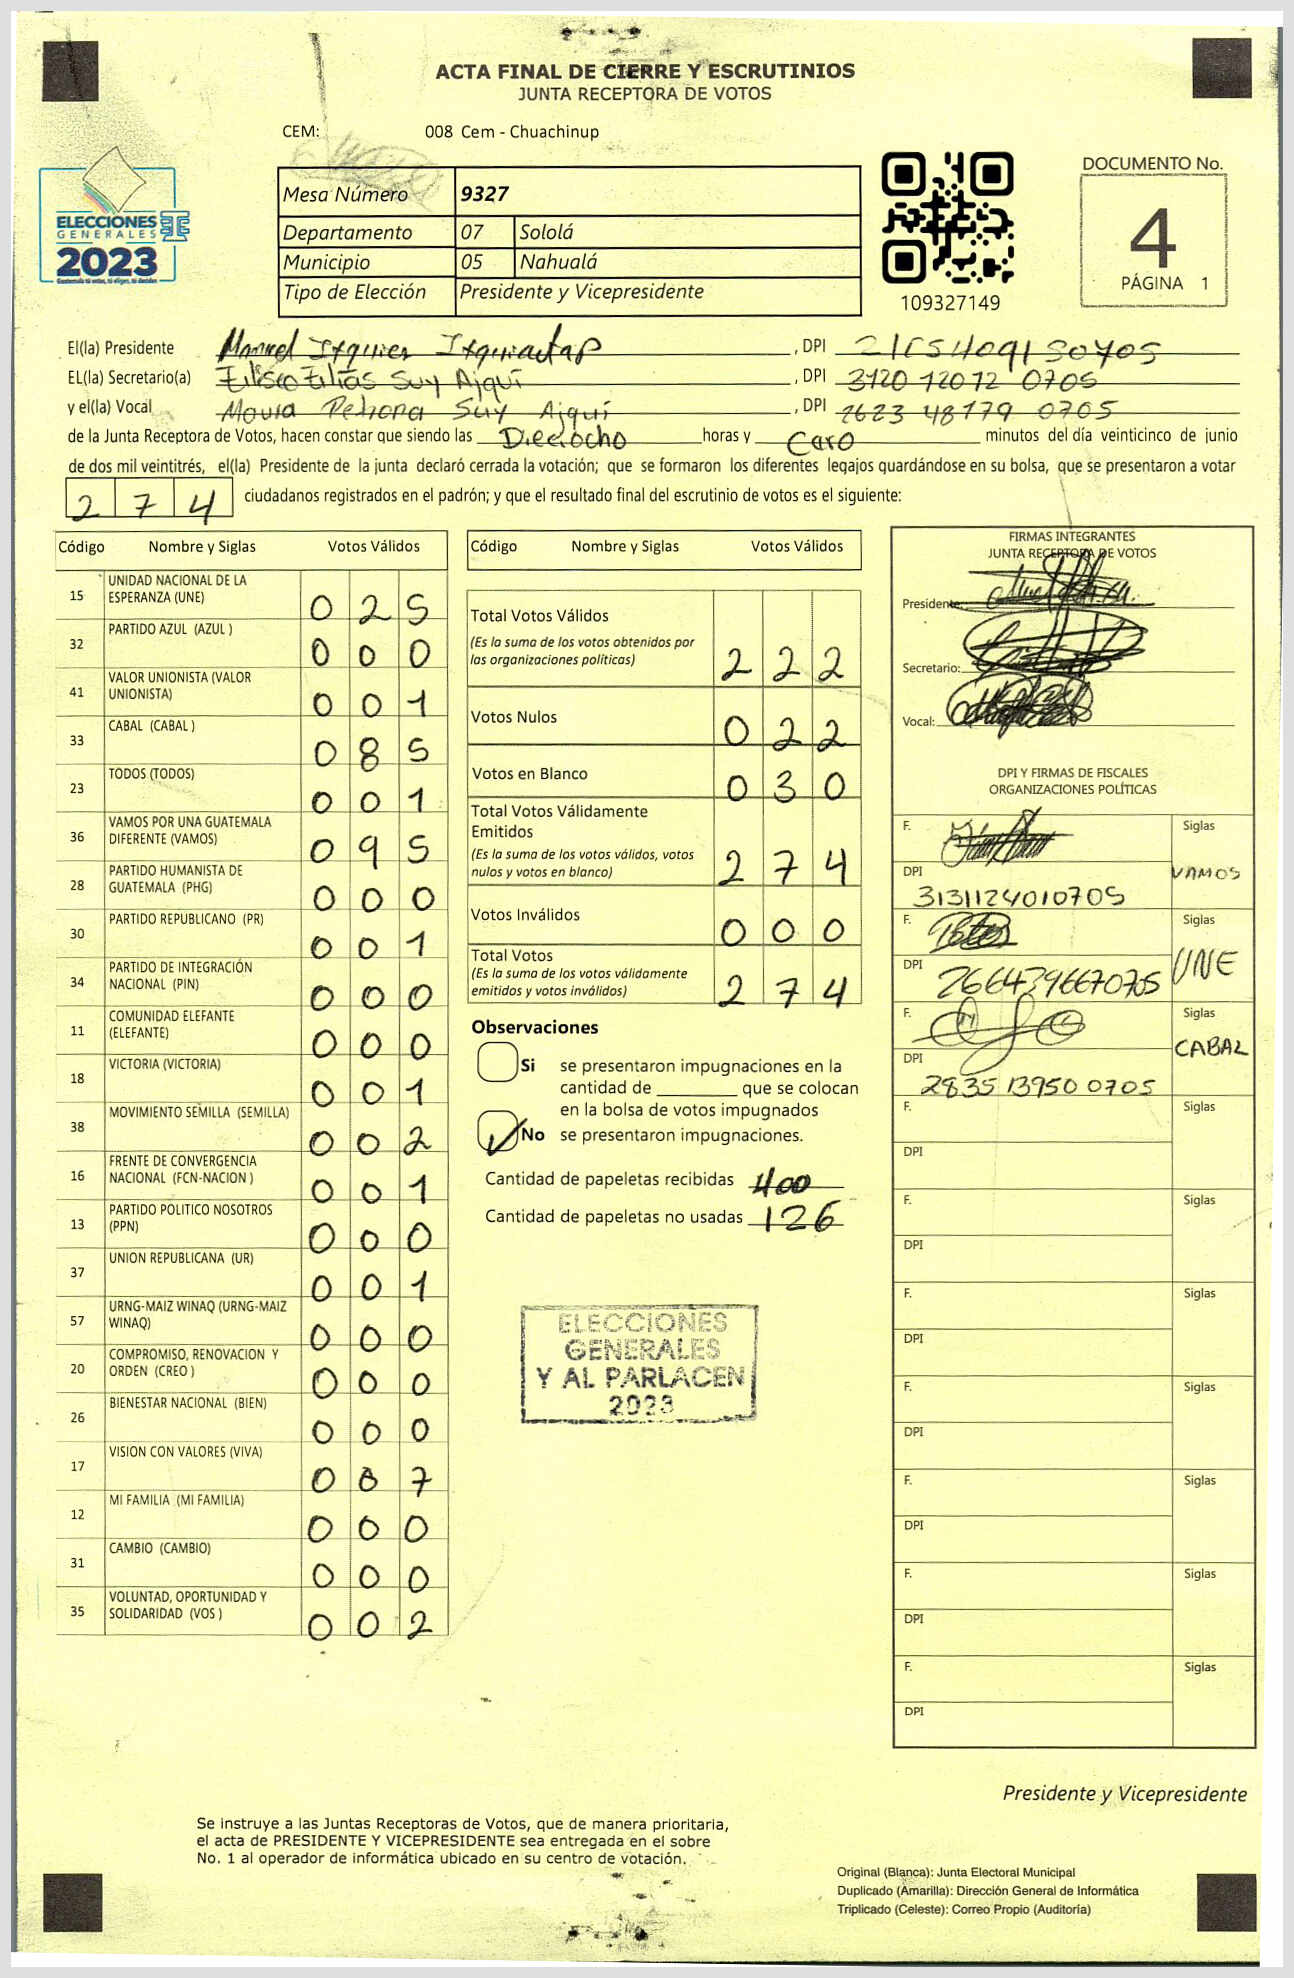 ACTA FINAL DE CIERRE Y ESCRUTINIOS
JUNTA RECEPTORA DE VOTOS
CEM: 008 Cem - Chuachinup
ELECCIONES
GENERALES
2023
Mesa Número 9327
Departamento 07 Sololá
Municipio 05 Nahualá
Tipo de Elección Presidente y Vicepresidente
109327149
DOCUMENTO No.
4
PÁGINA 1
El(la) Presidente Manuel , DPI
EL(la) Secretario(a) Suy Aiquí , DPI 3120 12012 0705
y el(la) Vocal Suy Aiquí , DPI 2623 48179 0705
de la Junta Receptora de Votos, hacen constar que siendo las Dieciocho horas y Cero minutos del día veinticinco de junio
de dos mil veintitrés, el(la) Presidente de la junta declaró cerrada la votación; que se formaron los diferentes legajos guardándose en su bolsa, que se presentaron a votar
274 ciudadanos registrados en el padrón; y que el resultado final del escrutinio de votos es el siguiente:
Código Nombre y Siglas Votos Válidos
15 UNIDAD NACIONAL DE LA ESPERANZA (UNE) 025
32 PARTIDO AZUL (AZUL ) 000
41 VALOR UNIONISTA (VALOR UNIONISTA) 001
33 CABAL (CABAL ) 085
23 TODOS (TODOS) 001
36 VAMOS POR UNA GUATEMALA DIFERENTE (VAMOS) 095
28 PARTIDO HUMANISTA DE GUATEMALA (PHG) 000
30 PARTIDO REPUBLICANO (PR) 001
34 PARTIDO DE INTEGRACIÓN NACIONAL (PIN) 000
11 COMUNIDAD ELEFANTE (ELEFANTE) 000
18 VICTORIA (VICTORIA) 001
38 MOVIMIENTO SEMILLA (SEMILLA) 002
16 FRENTE DE CONVERGENCIA NACIONAL (FCN-NACION ) 001
13 PARTIDO POLITICO NOSOTROS (PPN) 000
37 UNION REPUBLICANA (UR) 001
57 URNG-MAIZ WINAQ (URNG-MAIZ WINAQ) 000
20 COMPROMISO, RENOVACION Y ORDEN (CREO ) 000
26 BIENESTAR NACIONAL (BIEN) 000
17 VISION CON VALORES (VIVA) 007
12 MI FAMILIA (MI FAMILIA) 000
31 CAMBIO (CAMBIO) 000
35 VOLUNTAD, OPORTUNIDAD Y SOLIDARIDAD (VOS ) 002
Código Nombre y Siglas Votos Válidos
Total Votos Válidos
(Es la suma de los votos obtenidos por
las organizaciones políticas) 222
Votos Nulos 022
Votos en Blanco 030
Total Votos Válidamente
Emitidos
(Es la suma de los votos válidos, votos
nulos y votos en blanco) 274
Votos Inválidos 000
Total Votos
(Es la suma de los votos válidamente
emitidos y votos inválidos) 274
Observaciones
Si se presentaron impugnaciones en la
cantidad de ________ que se colocan
en la bolsa de votos impugnados
No se presentaron impugnaciones.
Cantidad de papeletas recibidas 400
Cantidad de papeletas no usadas 126
ELECCIONES
GENERALES
Y AL PARLACEN
2023
FIRMAS INTEGRANTES
JUNTA RECEPTORA DE VOTOS
Presidente:
Secretario:
Vocal:
DPI Y FIRMAS DE FISCALES
ORGANIZACIONES POLÍTICAS
F. Siglas
DPI VAMOS
3131124010705
F. Siglas
DPI UNE
2664396670705
F. Siglas
DPI CABAL
2835 13950 0705
F. Siglas
DPI
F. Siglas
DPI
F. Siglas
DPI
F. Siglas
DPI
F. Siglas
DPI
F. Siglas
DPI
F. Siglas
DPI
Presidente y Vicepresidente
Se instruye a las Juntas Receptoras de Votos, que de manera prioritaria,
el acta de PRESIDENTE Y VICEPRESIDENTE sea entregada en el sobre
No. 1 al operador de informática ubicado en su centro de votación.
Original (Blanca): Junta Electoral Municipal
Duplicado (Amarilla): Dirección General de Informática
Triplicado (Celeste): Correo Propio (Auditoría)